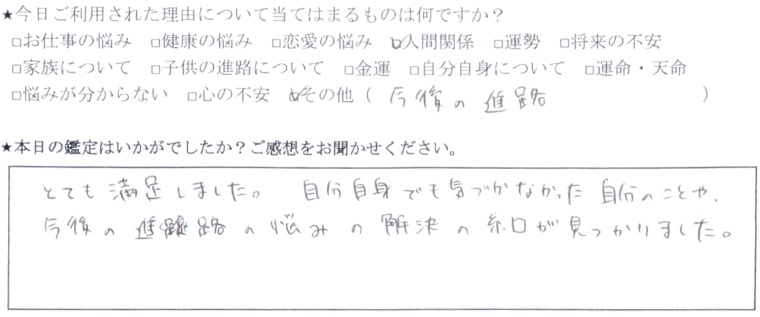 ★今日ご利用された理由について当てはまるものは何ですか？
□お仕事の悩み □健康の悩み □恋愛の悩み ☑人間関係 □運勢 □将来の不安
□家族について □子供の進路について □金運 □自分自身について □運命・天命
□悩みが分からない □心の不安 ☑その他（ 今後の進路 ）
★本日の鑑定はいかがでしたか？ご感想をお聞かせください。
とても満足しました。 自分自身でも気づかなかった自分のことや、
今後の進路の悩みの解決の糸口が見つかりました。